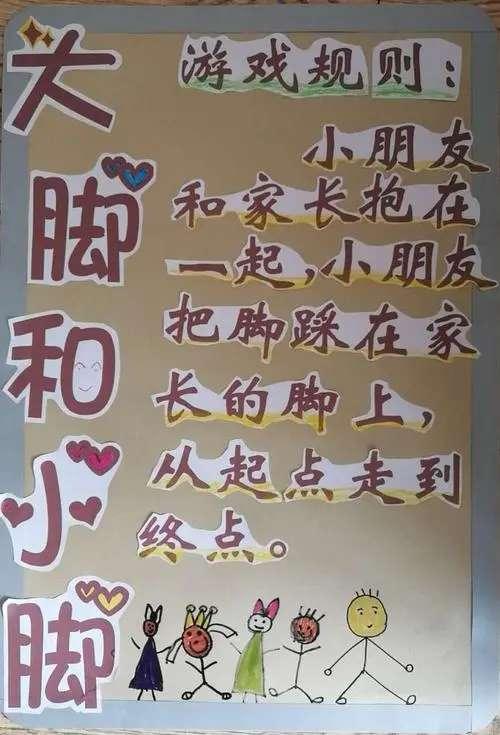 大脚和小脚
游戏规则：
小朋友
和家长抱在
一起，小朋友
把脚踩在家
长的脚上，
从起点走到
终点。